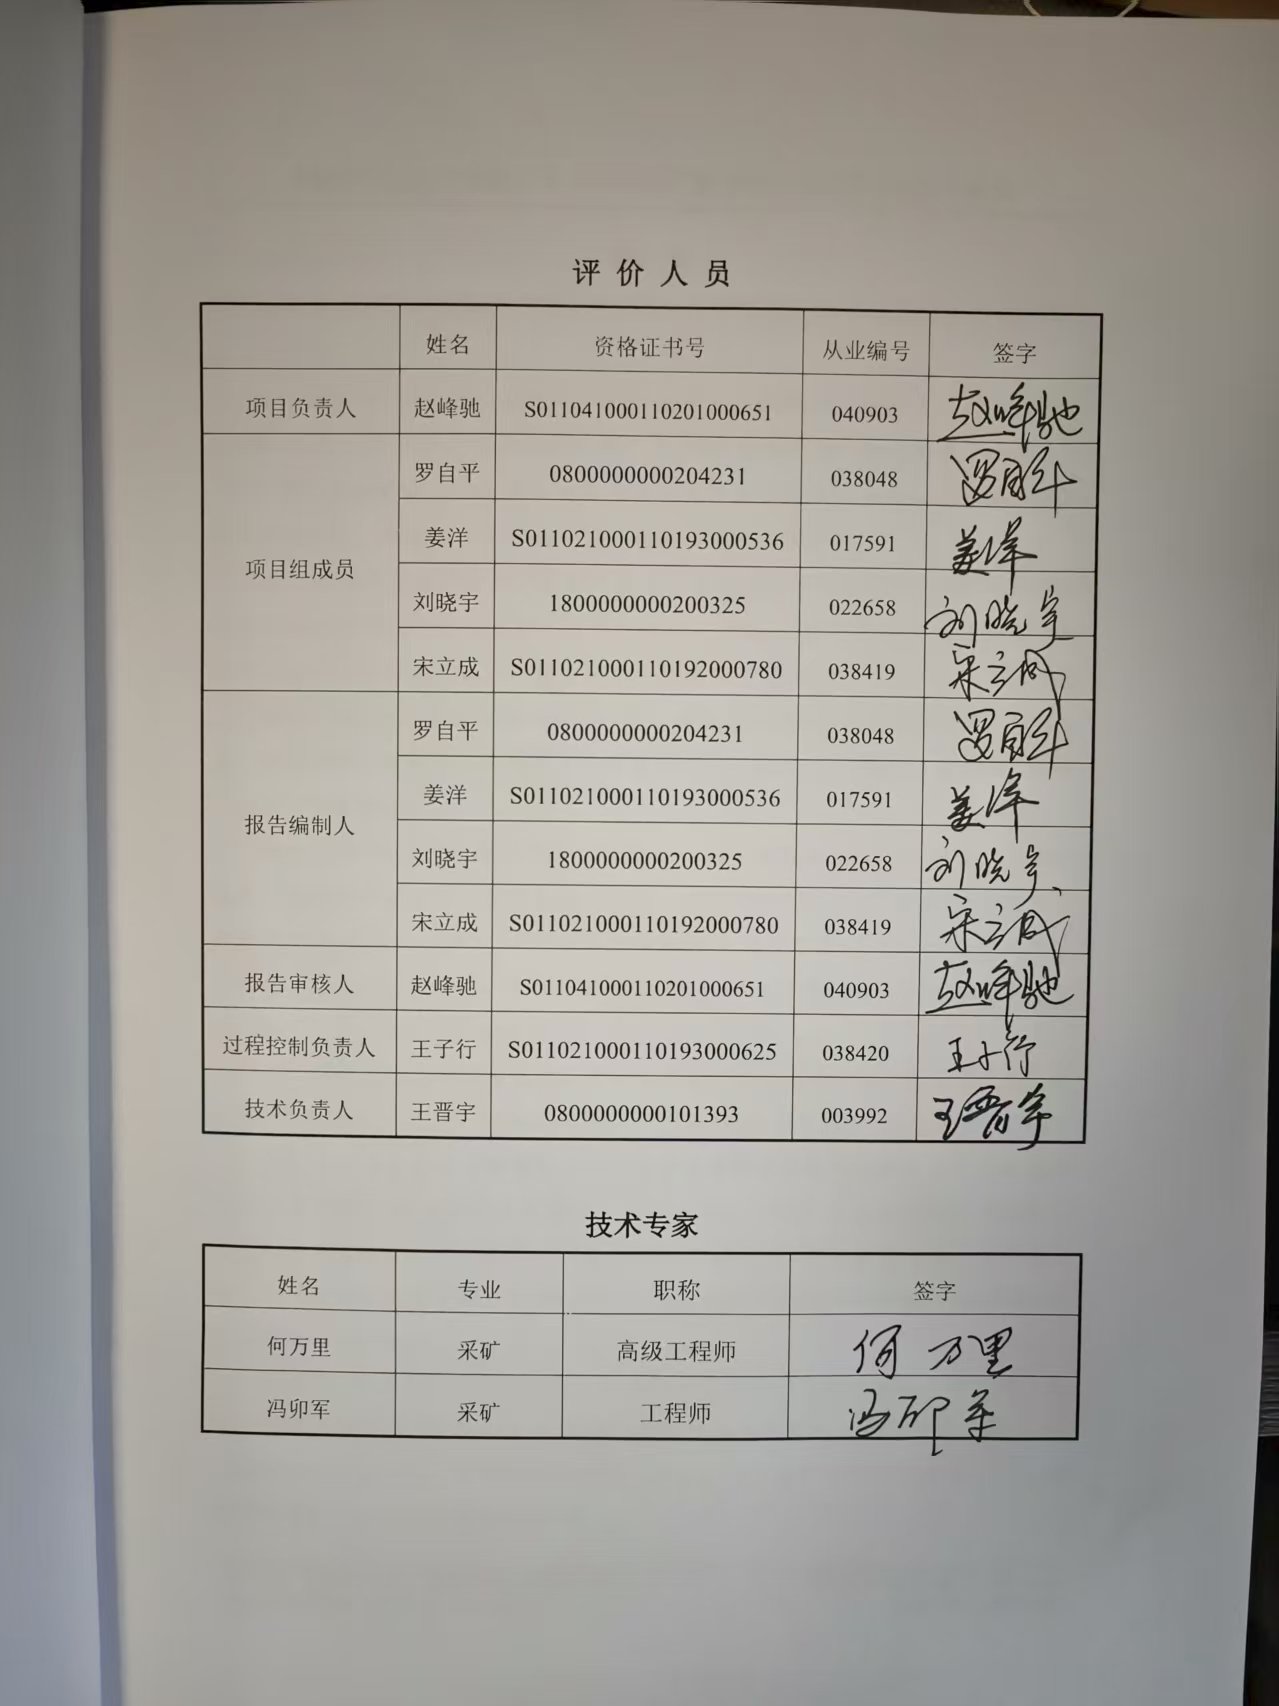 评价人员
姓名 资格证书号 从业编号 签字
项目负责人 赵峰驰 S011041000110201000651 040903 赵峰驰
项目组成员
罗自平 0800000000204231 038048 罗自平
姜洋 S011021000110193000536 017591 姜洋
刘晓宇 1800000000200325 022658 刘晓宇
宋立成 S011021000110192000780 038419 宋立成
报告编制人
罗自平 0800000000204231 038048 罗自平
姜洋 S011021000110193000536 017591 姜洋
刘晓宇 1800000000200325 022658 刘晓宇
宋立成 S011021000110192000780 038419 宋立成
报告审核人 赵峰驰 S011041000110201000651 040903 赵峰驰
过程控制负责人 王子行 S011021000110193000625 038420 王子行
技术负责人 王晋宇 0800000000101393 003992 王晋宇
技术专家
姓名 专业 职称 签字
何万里 采矿 高级工程师 何万里
冯卯军 采矿 工程师 冯卯军